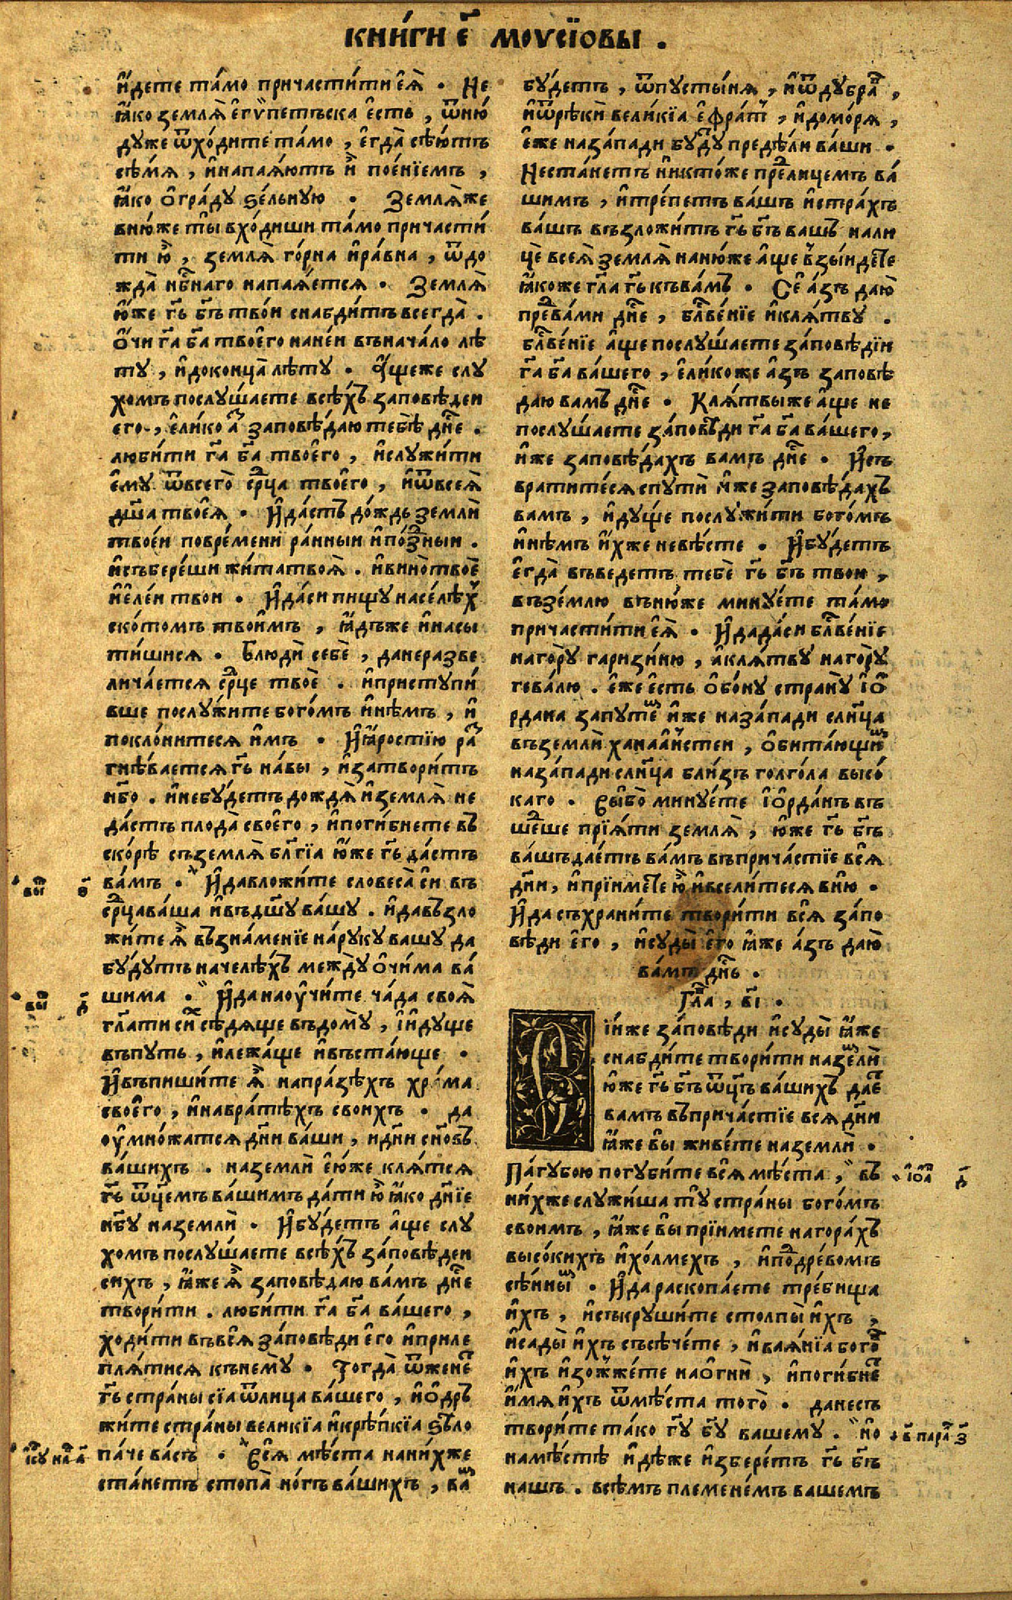 книги є҃ моусїовы .
и҆дете та́мо причасти́ти єѧ̀ . Не
ꙗ҆́ко землѧ̀ єгѵ́петьска є҆́сть , ѿню́
дуже ѿхо́дите та́мо , є҆гда̀ сѣ́ютъ
сѣ́мѧ , и҆напаѧ́ютъ и҆̀ пое́нїемъ ,
ꙗ҆́ко о҆гра́ду ѕе́льную . Землѧ́же
вню́же ты̀ вхо́диши та́мо причасти́
ти ю҆̀ , землѧ̀ го́рна и҆ра́вна , ѿдо
жда̀ нб҃наго напаѧ́етсѧ . Землѧ̀
ю҆́же г҃ь б҃ъ тво́и снабди́тъ всегда̀ .
Ѻ҆́чи г҃а б҃а твоего̀ нане́и внача́ло лѣ́
ту , и҆доконца̀ лѣ́ту . А҆́щеже слу
хомъ послу́шаете всѣ́хъ за́повѣдеи
его̀ , є҆ли́ко а҆́зъ заповѣ́даю тебѣ̀ дн҃е .
люби́ти г҃а б҃а твоего̀ , и҆служи́ти
є҆му̀ ѿвсего̀ ср҃ца твоего̀ , и҆ѿвсеѧ̀
дш҃а твоеѧ̀ . И҆да́стъ до́ждь землѝ
твое́и повре́мени ра́нныи и҆по́здныи .
и҆събере́ши жи́татвоѧ̀ . и҆вино̀твоѐ
и҆є҆ле́и твои . И҆да́си пи́щу насе́лѣхъ
ското́мъ твои҆́мъ , ꙗ҆дъ́же и҆насы́
тишисѧ . Блюдѝ себѐ , данеразве
лича́етсѧ ср҃це твоѐ . и҆приступи́
вше послу́жите бого́мъ и҆нѣ́мъ , и҆
покло́нитесѧ и҆́мъ . И҆ꙗ҆́ростїю ра́з
гнѣ́ваетсѧ г҃ь на́вы , и҆затвори́тъ
нб҃о . и҆небу́детъ дождѧ̀ и҆землѧ̀ не
да́стъ плода̀ своего̀ , и҆поги́бнете въ
ско́рѣ съземлѧ̀ бл҃гїа ю҆́же г҃ь да́стъ
ва́мъ . И҆давложи́те словеса̀ сѝ въ
ср҃цава́ша и҆въдш҃у ва́шу . и҆давъзло
жи́те ѧ҆̀ възна́менїе на́руку вашу да
бу́дутъ начелѣ́хъ между̀ о҆чи́ма ва́
шима . И҆данаоучи́те ча́да своѧ̀
гл҃ати сѝ сѣ́дѧще въдому̀ , и҆и҆ду́ще
въпу́ть , и҆лежа́ще и҆въста́юще .
И҆въпиши́те ѧ҆̀ напра́зѣхъ хра́ма
своего̀ , и҆навра́тѣхъ своихъ . да
оу҆мно́жатсѧ дн҃и ва́ши , и҆дн҃и сн҃овъ
ва́шихъ . наземлѝ є҆ю́же клѧ́тсѧ
г҃ь ѿц҃емъ ва́шимъ да́ти ю҆̀ ꙗ҆́ко дн҃їе
нб҃у наземлѝ . И҆бу́детъ а҆́ще слу
хомъ послу́шаете всѣ́хъ за́повѣдеи
сихъ , ꙗ҆́же ѧ҆̀ заповѣ́даю ва́мъ дн҃е
твори́ти . люби́ти г҃а б҃а ва́шего ,
ходи́ти въвсѧ̀ за́повѣди є҆го̀ и҆приле
плѧ́тисѧ кънему̀ . Тогда̀ ѿжене́тъ
г҃ь стра́ны сїа ѿлица ва́шего , и҆о҆дръ
жи́те стра́ны вели́кїа и҆крѣ́пкїа ѕѣло
па́че ва́съ . Всѧ̀ мѣ́ста нани́хже
ста́нетъ стопа̀ но́гъ ва́шихъ , ва́мъ
бу́детъ , ѿпусты́нѧ , и҆ѿдубра́въ ,
и҆ѿрѣки́ вели́кїа є҆фра́тъ , и҆домо́рѧ ,
є҆́же наза́пади бу́ду предѣ́ли ва́ши .
Неста́нетъ никто́же пре́дъ лице́мъ ва́
шимъ , и҆тре́петъ ва́шъ и҆стра́хъ
ва́шъ възложи́тъ г҃ь б҃ъ вашъ нали
цѐ всеѧ̀ землѧ̀ наню́же а҆́ще взы́идете
ꙗ҆́коже гл҃а г҃ь къва́мъ . Сѐ а҆́зъ даю̀
пре́двами дн҃е , бл҃ве́нїе и҆клѧ́тву .
бл҃ве́нїе а҆́ще послу́шаете за́повѣдїи
г҃а б҃а ва́шего , є҆ли́коже а҆́зъ заповѣ
даю вамъ дн҃е . Клѧ́твыже а҆́ще не
послу́шаете за́повѣди г҃а б҃а ва́шего ,
и҆́же заповѣ́дахъ вамъ дн҃е . И҆съ
врати́тесѧ спутѝ и҆́же заповѣ́дахъ
вамъ , и҆ду́ще послужи́ти бого́мъ
и҆нѣ́мъ и҆́хже невѣ́сте . И҆бу́детъ
є҆гда̀ въведе́тъ тебѐ г҃ь б҃ъ твои ,
въземлю въню́же мину́ете та́мо
причасти́ти єѧ̀ . И҆дада́си бл҃ве́нїе
наго́ру гаризи́ню , а҆клѧ́тву наго́ру
гева́лю . є҆́же є҆́сть о҆бо́ну страну̀ і҆о҆
рдана запуте́мъ и҆́же наза́пади сл҃нца
въземлѝ ханаа́нистеи , о҆бита́ющимъ
наза́пади сл҃нца бли́зъ голго́ла высо́
каго . Вы́бо мину́ете і҆ѻ҆рда́нъ въ
ше́дше прїѧ́ти землѧ̀ , ю҆́же г҃ь б҃ъ
ва́шъдае́тъ ва́мъ въприча́стїе всѧ̀
дн҃и , и҆прїи́мете ю҆̀ и҆всели́тесѧ вню̀ .
И҆дасъхрани́те твори́ти всѧ̀ за́по
вѣди є҆го̀ , и҆суды̀ є҆го̀ ꙗ҆́же а҆́зъ даю̀
ва́мъ дн҃ь .
Гл҃а , в҃і .
С
їи́же за́повѣди и҆суды̀ ꙗ҆́же
снабди́те твори́ти назе́мли
ю҆́же г҃ь б҃ъ ѿц҃ъ ва́шихъ дае́тъ
вамъ въприча́стїе всѧ дн҃и
ꙗ҆́же вы̀ живе́те наземлѝ .
Па́губою погуби́те всѧ̀ мѣ́ста , въ
ни́хже служи́ша ту̀ стра́ны бого́мъ
своимъ , ꙗ҆́же вы̀ прїи́мете нагора́хъ
высо́кихъ и҆хо́лмехъ , и҆подре́вомъ
сѣ́ннымъ . И҆дараскопа́ете тре́бища
и҆́хъ , и҆съкруши́те столпы̀ и҆́хъ ,
и҆сады̀ и҆́хъ съсѣче́те , и҆вая́нїа бого́въ
и҆́хъ и҆зожже́те наогнѝ , и҆поги́бнетъ
и҆́мѧ и҆́хъ ѿмѣ́ста того̀ . данесъ
твори́те та́ко г҃у б҃у вашему . но
намѣ́стѣ и҆дѣ́же и҆збере́тъ г҃ь б҃ъ
нашъ . всѣ́мъ племене́мъ вашемъ